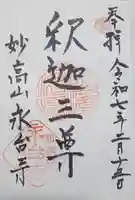 奉拝 令和七年二月十五日
釈迦三尊
妙高山 永台寺